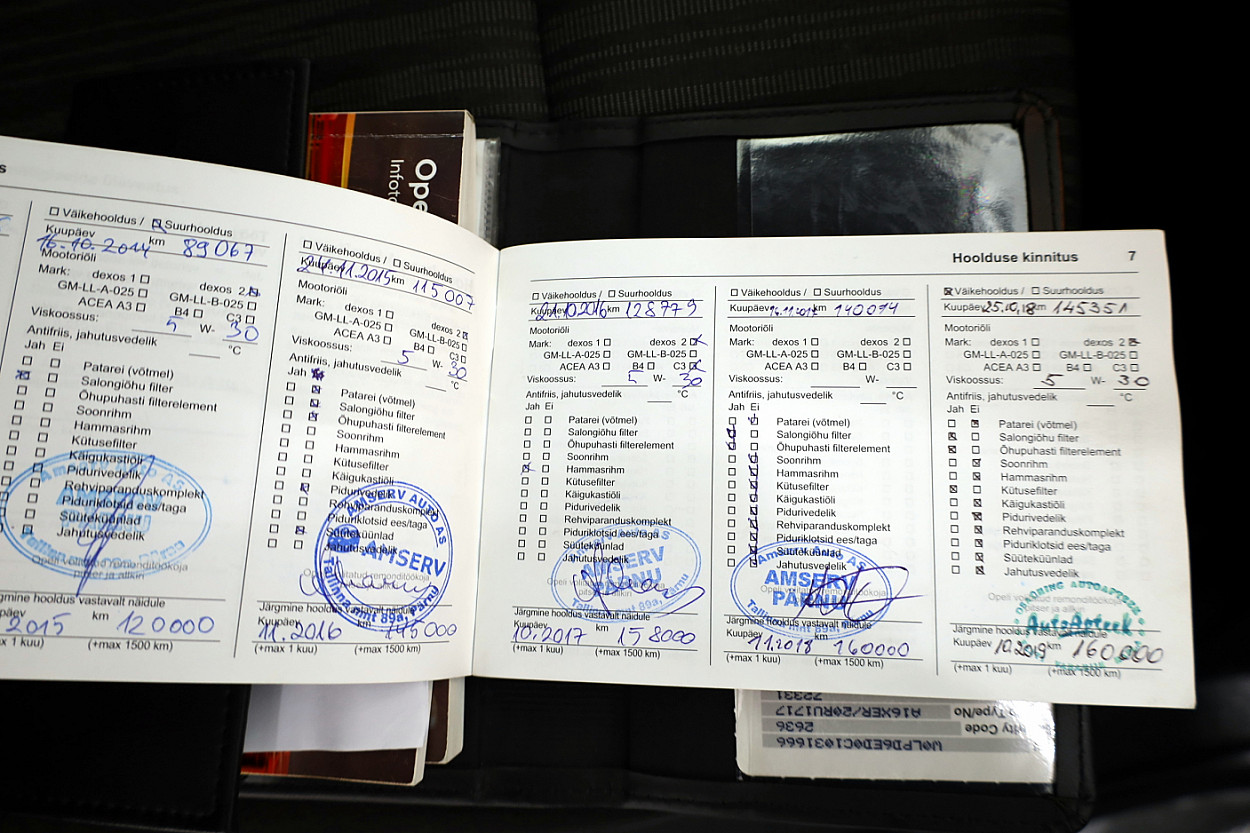 Ope
Infot
s
☐ Väikehooldus / ☒ Suurhooldus
Kuupäev km
16.10.2014 89067
Mootoriõli
Mark: dexos 1 ☐ dexos 2 ☒
GM-LL-A-025 ☐ GM-LL-B-025 ☐
ACEA A3 ☐ B4 ☐ C3 ☐
Viskoossus: 5 W- 30
Antifriis, jahutusvedelik ____ °C
Jah Ei
Patarei (võtmel)
Salongiõhu filter
Õhupuhasti filterelement
Soonrihm
Hammasrihm
Kütusefilter
Käigukastiõli
Pidurivedelik
Rehviparanduskomplekt
Piduriklotsid ees/taga
Süüteküünlad
Jahutusvedelik
Amserv Auto AS
AMSERV
PÄRNU
mmserv vastavalt näidule
Kuupäev km
2015 120000
(+max 1500 km)
☐ Väikehooldus / ☐ Suurhooldus
Kuupäev km
24.11.2015 115007
Mootoriõli
Mark: dexos 1 ☐ dexos 2 ☒
GM-LL-A-025 ☐ GM-LL-B-025 ☐
ACEA A3 ☐ B4 ☐ C3 ☐
Viskoossus: 5 W- 30
Antifriis, jahutusvedelik ____ °C
Jah Ei
Patarei (võtmel)
Salongiõhu filter
Õhupuhasti filterelement
Soonrihm
Hammasrihm
Kütusefilter
Käigukastiõli
Pidurivedelik
Rehviparanduskomplekt
Piduriklotsid ees/taga
Süüteküünlad
Jahutusvedelik
AMSERV AUTO AS
AMSERV
Tallinna mnt 89a, Pärnu
Järgmine hooldus vastavalt näidule
Kuupäev km
11.2016 145000
(+max 1 kuu) (+max 1500 km)
Hoolduse kinnitus 7
☐ Väikehooldus / ☐ Suurhooldus
Kuupäev 21.10.2016 km 128779
Mootoriõli
Mark: dexos 1 ☐ dexos 2 ☒
GM-LL-A-025 ☐ GM-LL-B-025 ☐
ACEA A3 ☐ B4 ☐ C3 ☒
Viskoossus: 5 W- 30
Antifriis, jahutusvedelik ____ °C
Jah Ei
Patarei (võtmel)
Salongiõhu filter
Õhupuhasti filterelement
Soonrihm
Hammasrihm
Kütusefilter
Käigukastiõli
Pidurivedelik
Rehviparanduskomplekt
Piduriklotsid ees/taga
Süüteküünlad
Jahutusvedelik
AMSERV
PÄRNU
Tallinna mnt 89a, Pärnu
Järgmine hooldus vastavalt näidule
Kuupäev km
10.2017 158000
(+max 1 kuu) (+max 1500 km)
☐ Väikehooldus / ☐ Suurhooldus
Kuupäev km 140094
Mootoriõli
Mark: dexos 1 ☐ dexos 2 ☐
GM-LL-A-025 ☐ GM-LL-B-025 ☐
ACEA A3 ☐ B4 ☐ C3 ☐
Viskoossus: ____ W- ____
Antifriis, jahutusvedelik ____ °C
Jah Ei
Patarei (võtmel)
Salongiõhu filter
Õhupuhasti filterelement
Soonrihm
Hammasrihm
Kütusefilter
Käigukastiõli
Pidurivedelik
Rehviparanduskomplekt
Piduriklotsid ees/taga
Süüteküünlad
Jahutusvedelik
Amserv Auto AS
AMSERV
PÄRNU
Tallinna mnt 89a, Pärnu
Järgmine hooldus vastavalt näidule
Kuupäev km
11.2018 160000
(+max 1 kuu) (+max 1500 km)
☒ Väikehooldus / ☐ Suurhooldus
Kuupäev 25.10.18 km 145351
Mootoriõli
Mark: dexos 1 ☐ dexos 2 ☒
GM-LL-A-025 ☐ GM-LL-B-025 ☐
ACEA A3 ☐ B4 ☐ C3 ☐
Viskoossus: 5 W- 30
Antifriis, jahutusvedelik ____ °C
Jah Ei
Patarei (võtmel)
Salongiõhu filter
Õhupuhasti filterelement
Soonrihm
Hammasrihm
Kütusefilter
Käigukastiõli
Pidurivedelik
Rehviparanduskomplekt
Piduriklotsid ees/taga
Süüteküünlad
Jahutusvedelik
AutoApteek
Järgmine hooldus vastavalt näidule
Kuupäev 10.2019 km 160000
(+max 1 kuu) (+max 1500 km)
72331
Type/No A16XER/20RU1717
ity Code 2636
W0LPD6ED0C1031666